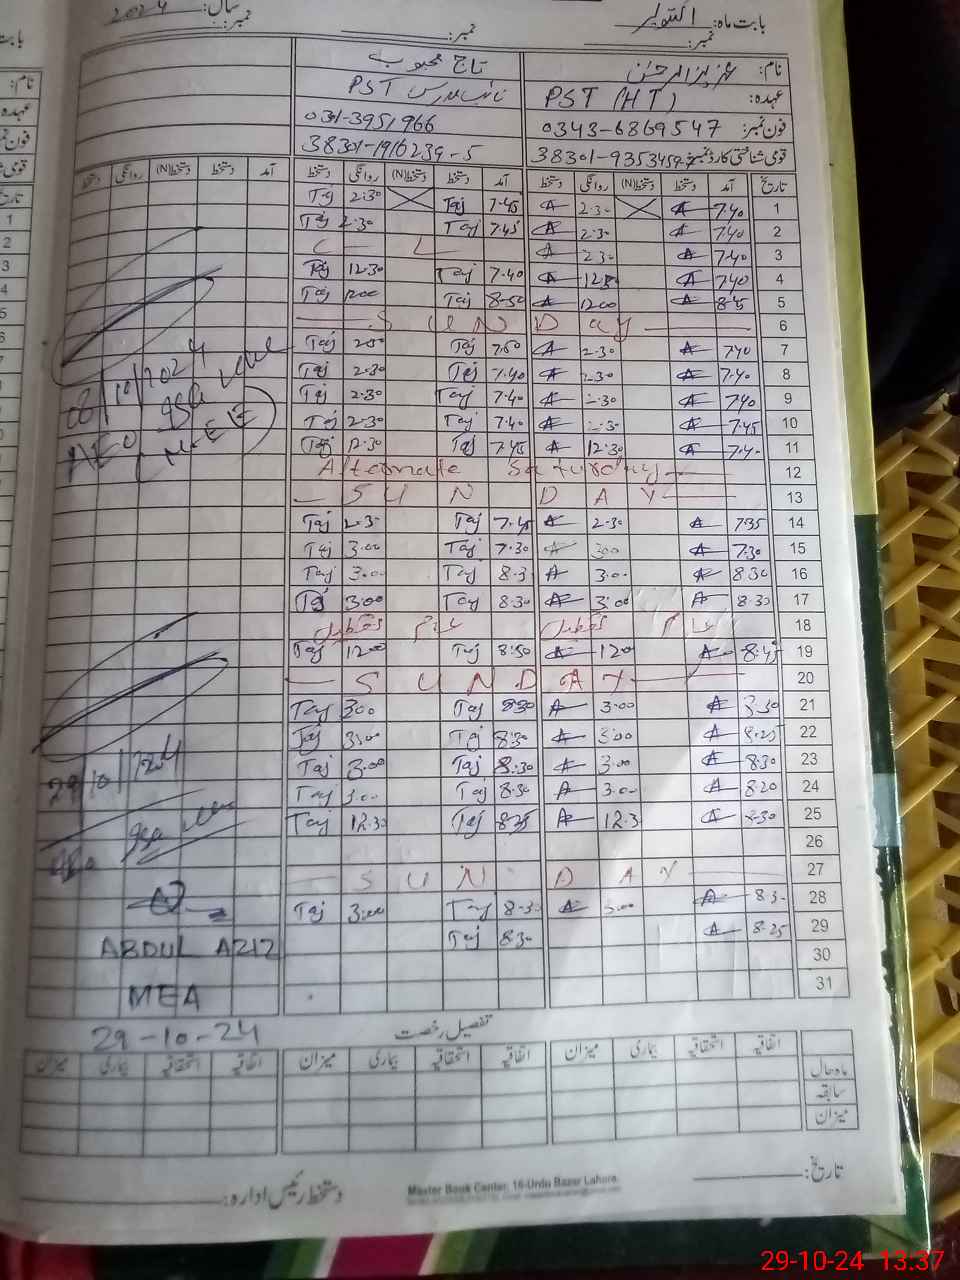 بابت ماہ: اکتوبر نمبر: سال: 2024 نمبر:
نام: عزیزالرحمٰن تاج محبوب
عہدہ: PST (HT) PST
فون نمبر: 0343-6869547 0301-3951966
قومی شناختی کارڈ نمبر: 38301-9353459- 38301-1916239-5
تاریخ آمد دستخط دستخط(N) روانگی دستخط آمد دستخط دستخط(N) روانگی دستخط آمد دستخط دستخط(N) روانگی دستخط
1 7.40 A 2.30 A 7.45 Taj 2.30 Taj
2 7.40 A 2.30 A 7.45 Taj 2.30 Taj
3 7.40 A 2.30 A C L
4 7.40 A A 7.40 Taj 12.30 Taj
5 8.45 A 1200 A 8.50 Taj 1200 Taj
6 SUNDAY
7 7.40 A 2.30 A Taj Taj
8 7.40 A 2.30 A 7.40 Taj 2.30 Taj
9 7.40 A 2.30 A 7.40 Taj 2.30 Taj
10 7.45 A 2.30 A 7.40 Taj 2.30 Taj
11 7.40 A 12.30 A 7.45 Taj 12.30 Taj
12 Alternate Saturday
13 SUNDAY
14 7.35 A 2.30 A 7.45 Taj 2.30 Taj
15 7.30 A 3.00 A 7.30 Taj 3.00 Taj
16 8.30 A 3.00 A 8.3 Taj 3.00 Taj
17 8.30 A 3.00 A 8.30 Taj 3.00 Taj
18
19 8.45 A 120 A 8.50 Taj 1200 Taj
20 SUNDAY
21 A 3.00 A 8.30 Taj 3.00 Taj
22 8.25 A 3.00 A 8.30 Taj 3.00 Taj
23 8.30 A 3.00 A 8.30 Taj 3.00 Taj
24 8.20 A 3.00 A 8.30 Taj 3.00 Taj
25 8.30 A 12.3 A 8.35 Taj 12.30 Taj
26
27 SUNDAY
28 8.3 A 3.00 A 8.30 Taj 3.00 Taj
29 8.25 A 8.30 Taj
30
31
08/10/2024
AEO
29/10/2024
ABDUL AZIZ
MEA
29-10-24
تفصیل رخصت
اتفاقیہ استحقاقیہ بیماری میزان اتفاقیہ استحقاقیہ بیماری میزان اتفاقیہ استحقاقیہ بیماری میزان
ماہ حال
سابقہ
میزان
تاریخ: دستخط رئیس ادارہ:
Master Book Center, 16-Urdu Bazar Lahore.
29-10-24 13:37